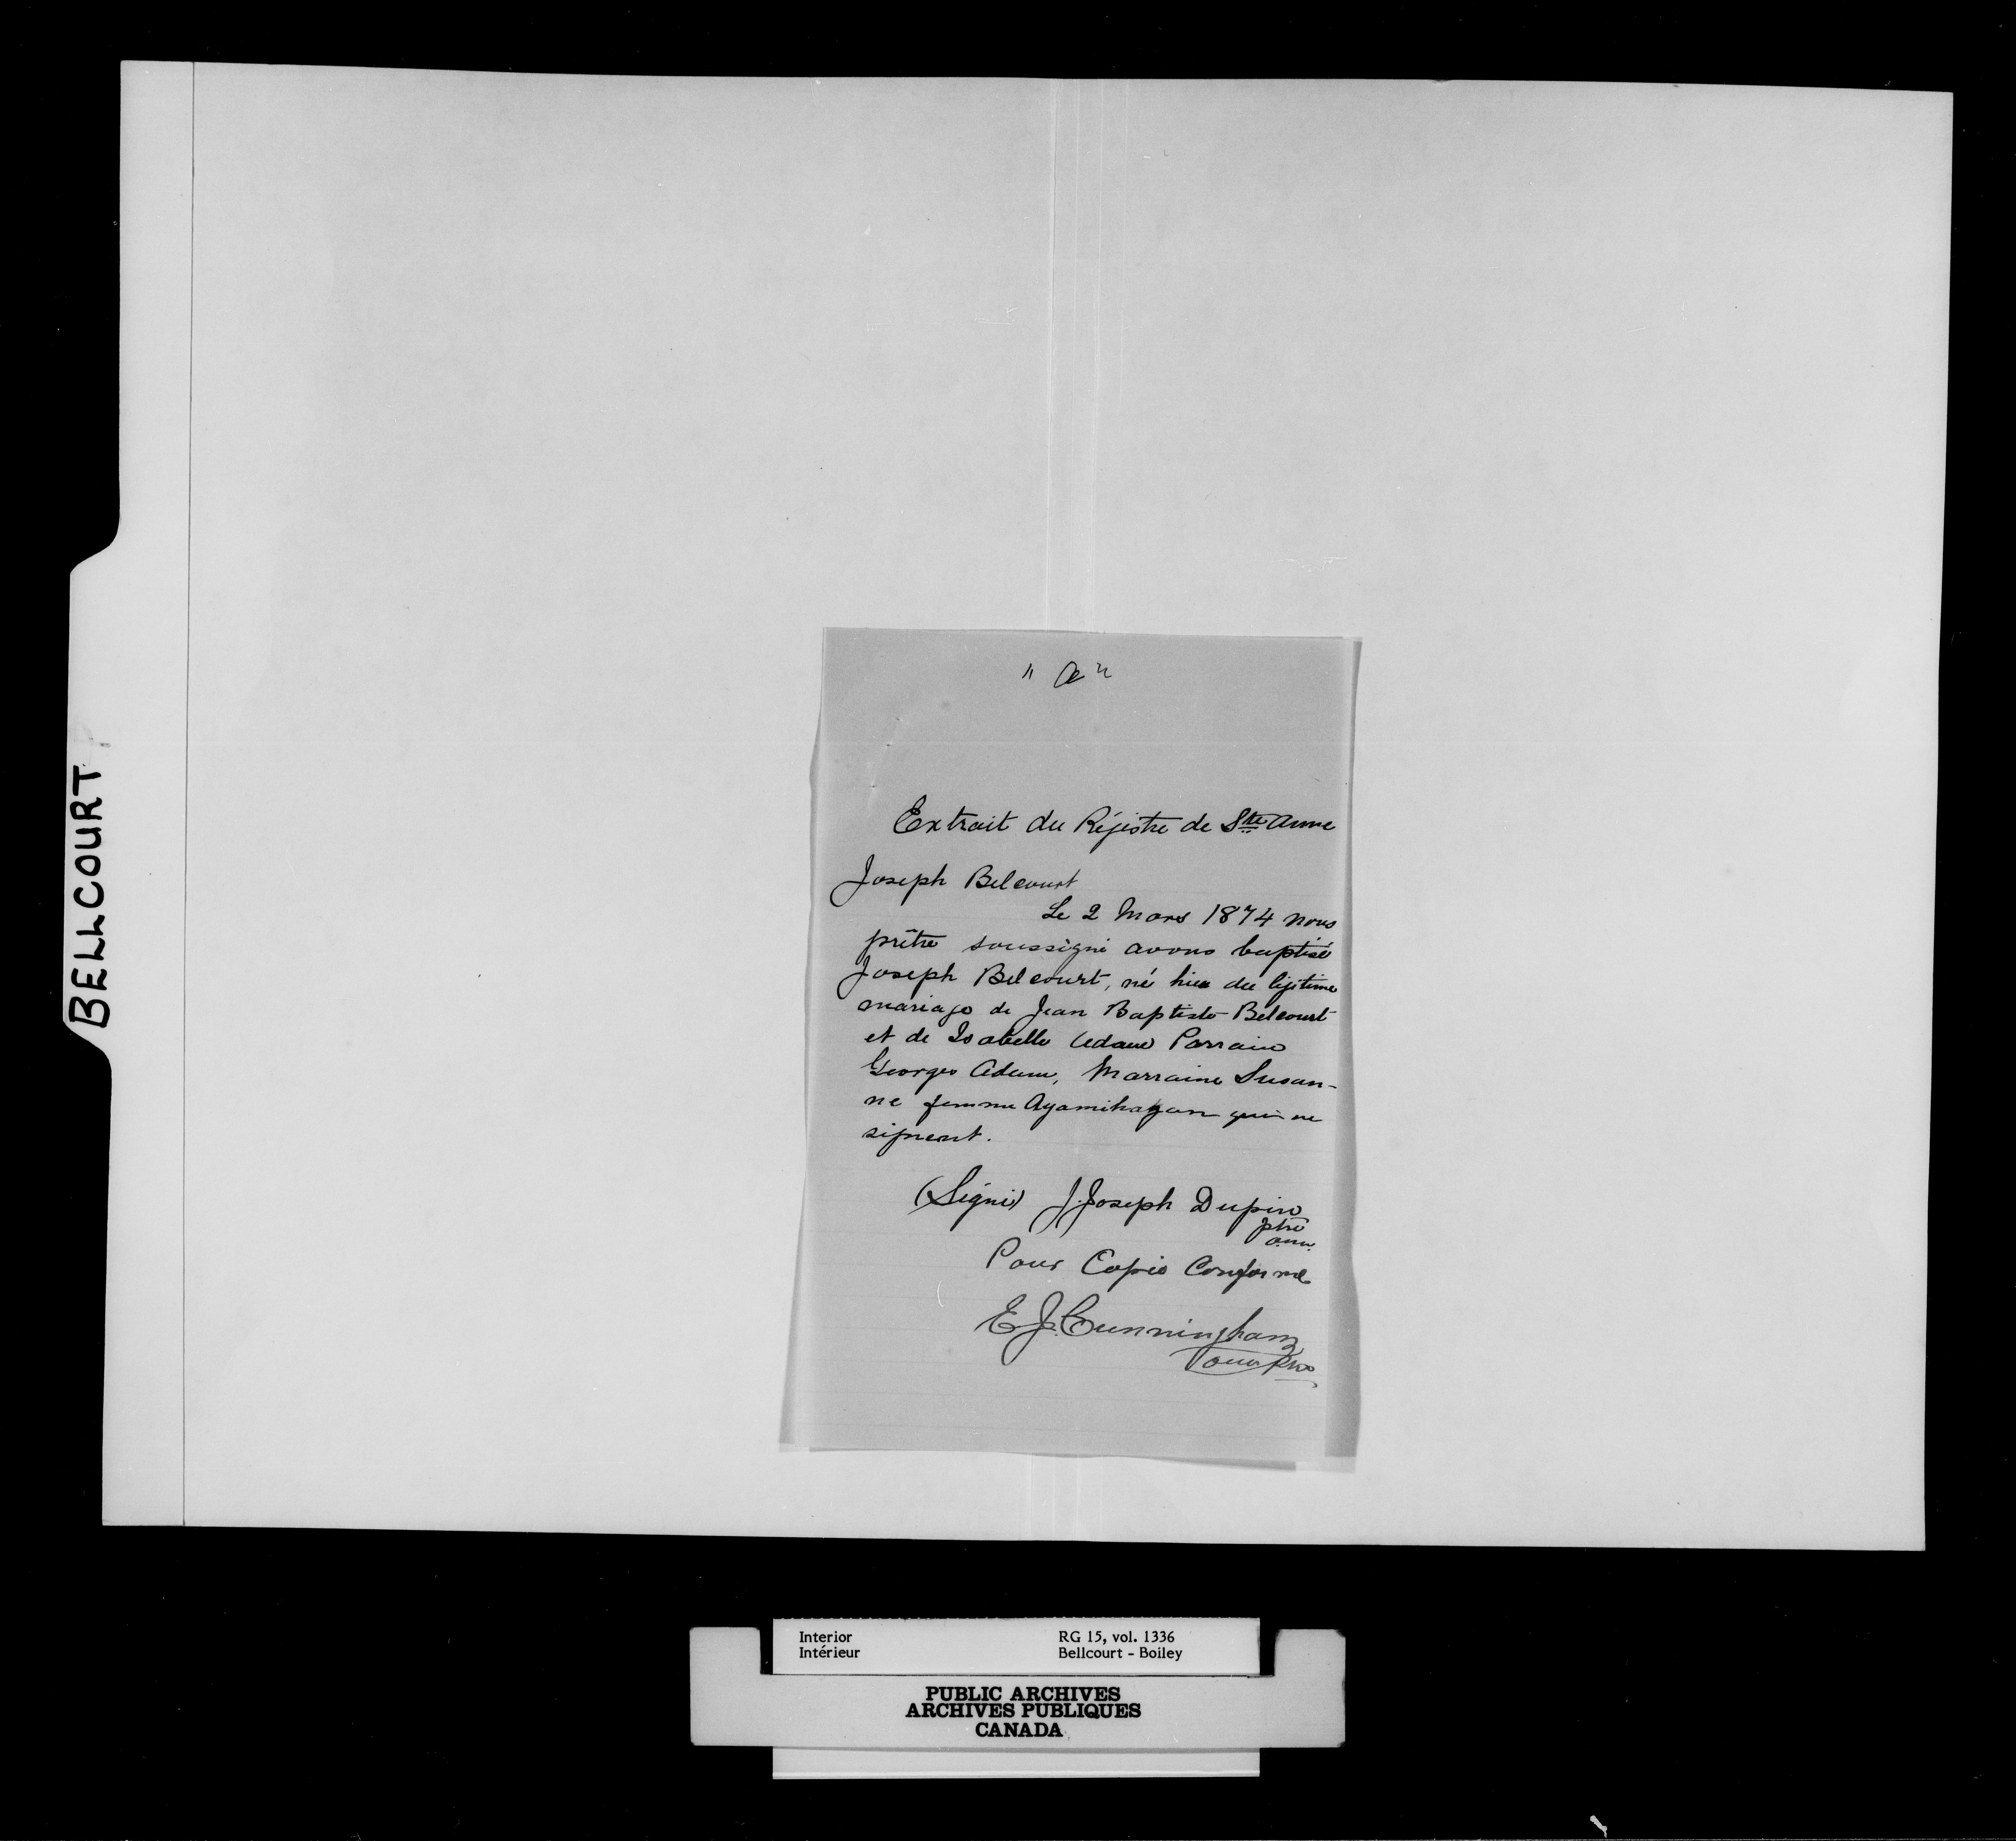 BELLCOURT
" a "
Extrait du Régistre de Ste Anne
Joseph Belcourt
Le 2 Mars 1874 nous
prêtre soussigné avons baptisé
Joseph Belcourt, né hier du légitime
mariage de Jean Baptiste Belcourt
et de Isabelle Adam Parrain
Georges Adam, Marraine Susan-
ne femme Ayamihagan qui ne
signent.
(Signé) J. Joseph Dupin
ptre
o.m.i.
Pour Copie Conforme
E J. Cunningham
Interior RG 15, vol. 1336
Intérieur Bellcourt - Boiley
PUBLIC ARCHIVES
ARCHIVES PUBLIQUES
CANADA